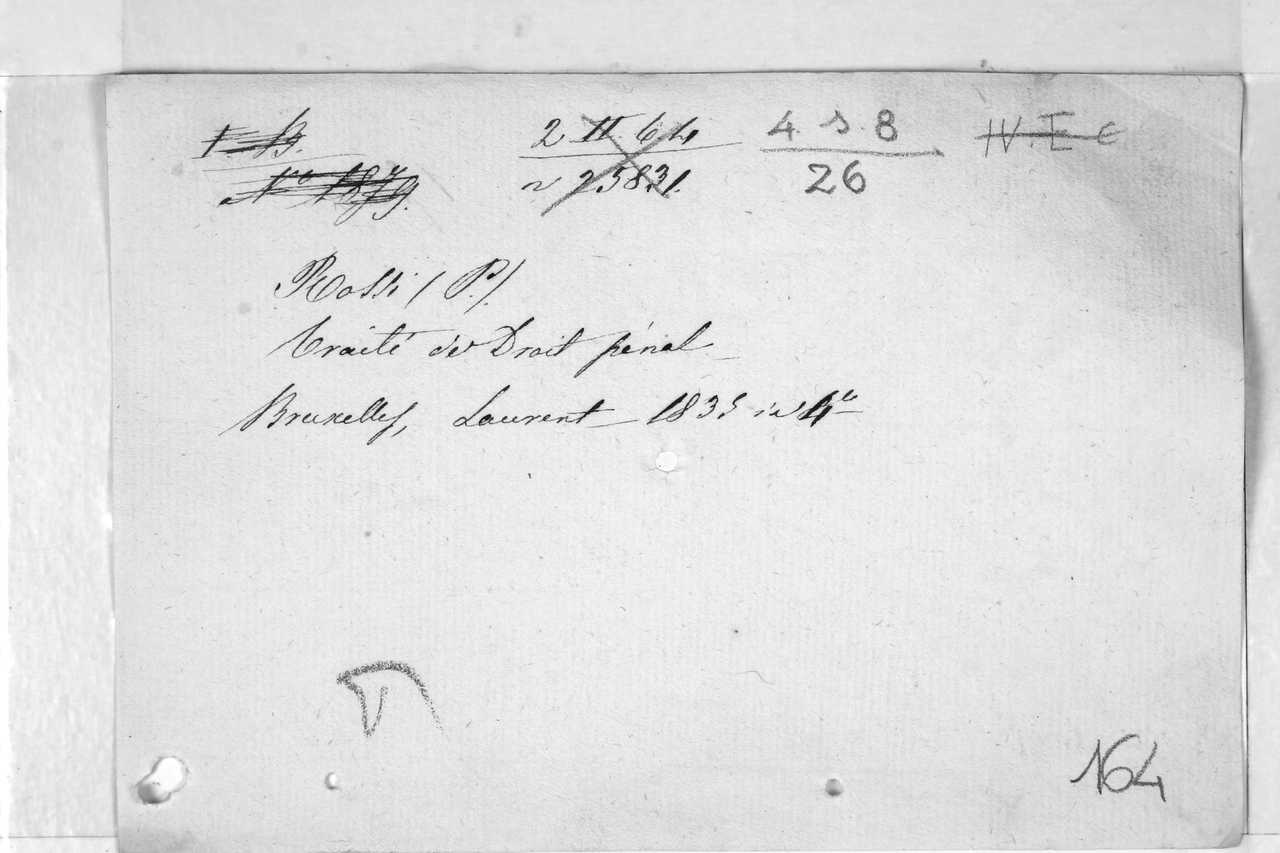 1 B. 2 II 64 4. S. 8 IV. I C
No 1879. n 25831. 26
Rossi (P.)
Traité de Droit pénal
Bruxelles, Laurent 1835 in 4o
164